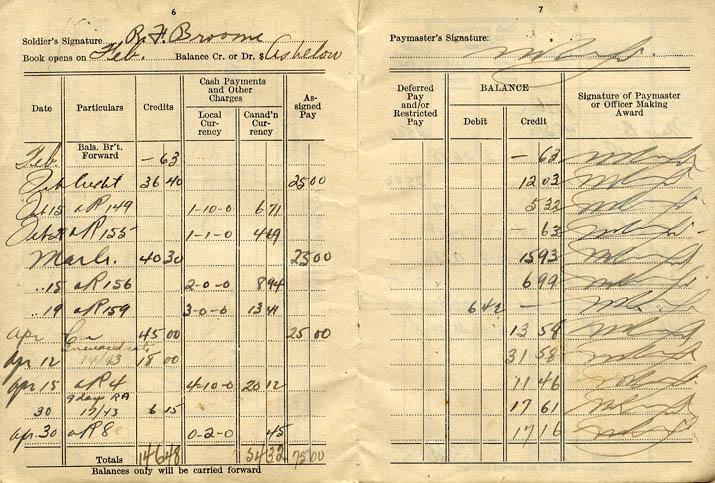 6
Soldier's Signature R. F. Broome
Book opens on Feb. Balance Cr. or Dr. $ As below
Date Particulars Credits Cash Payments and Other Charges As-signed Pay
Local Cur-rency Canad'n Cur-rency
Feb. Bals. Br't. Forward — 63
Feb Credit 36 40 25 00
Feb 15 AR 149 1-10-0 6 71
AR 155 1-1-0 4 69
March. 40 30 25 00
" 15 AR 156 2-0-0 8 94
" 19 AR 159 3-0-0 13 41
Apr Cr 45 00 25 00
Apr 12 14/43 18 00
Apr 15 AR 4 4-10-0 20 12
9 day RA
30 17/43 6 15
Apr. 30 AR 8 0-2-0 45
Totals 146 48 54 32 75 00
Balances only will be carried forward
7
Paymaster's Signature:
Deferred Pay and/or Restricted Pay BALANCE Signature of Paymaster or Officer Making Award
Debit Credit
— 63
12 03
5 32
— 63
15 93
6 99
6 42 —
13 58
31 58
11 46
17 61
17 16